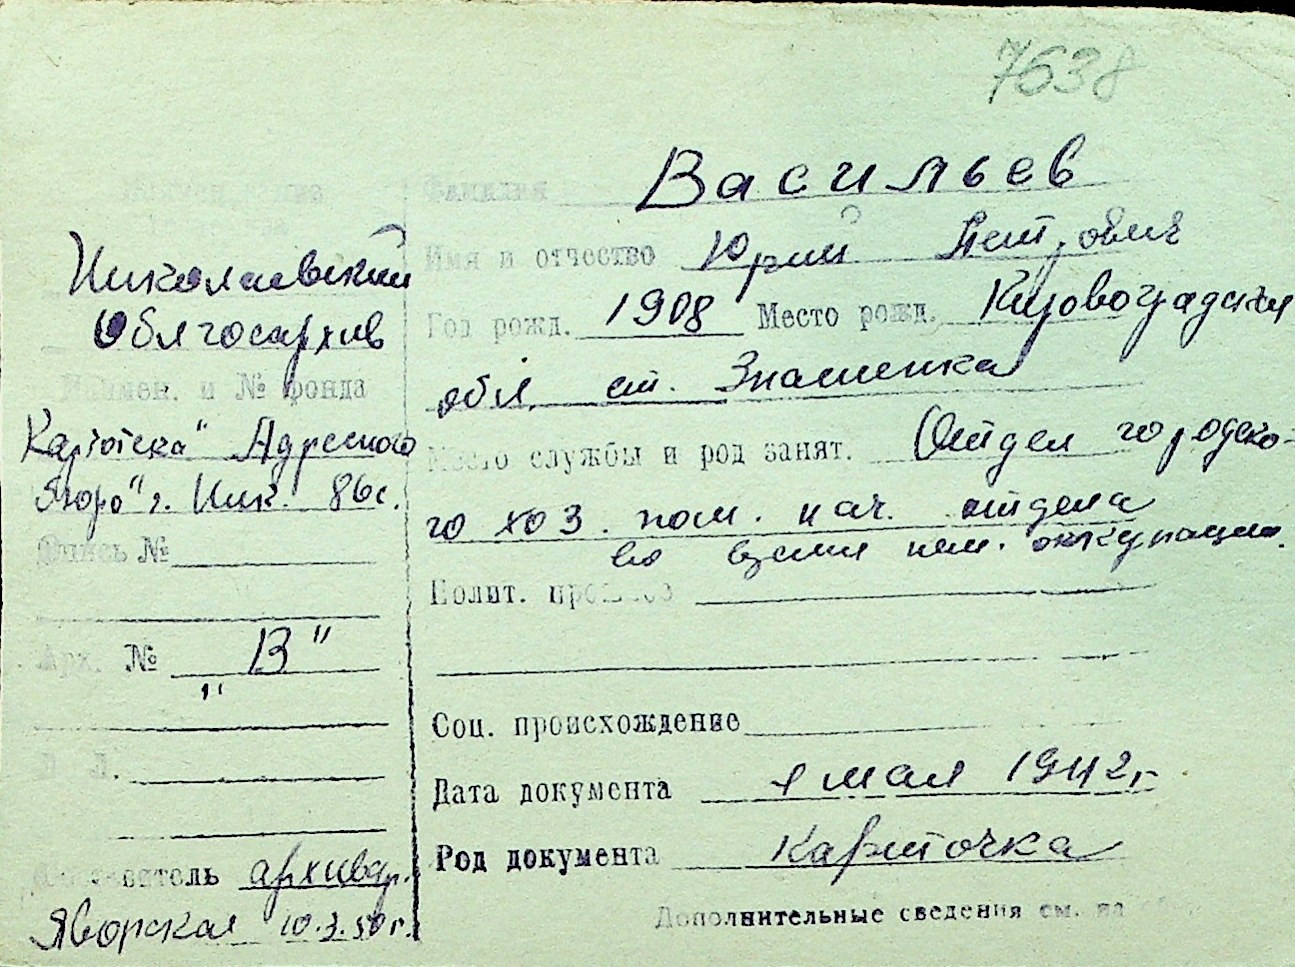 7638
Фамилия Васильев
Имя и отчество Юрий Петрович
Год рожд. 1908 Место рожд. Кировоградская
обл. ст. Знаменка
Место службы и род занят. Отдел городско-
го хоз. пом. нач. отдела
во время нем. оккупации.
Полит.
Соц. происхождение
Дата документа 1 мая 1942 г.
Род документа Карточка
Дополнительные сведения см. на
Николаевский
Облгосархив
Наимен. и № фонда
Картотека "Адресного
бюро" г. Ник. 86с.
Опись №
Арх. № "В"
Л. Л.
Составитель архивар.
Яворская 10.3.50 г.